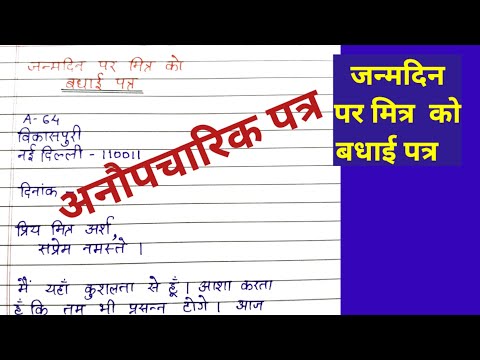 जन्मदिन पर मित्र को
बधाई पत्र
A-64
विकासपुरी
नई दिल्ली - 110011
दिनांक
प्रिय मित्र अर्श,
सप्रेम नमस्ते ।
मैं यहाँ कुशलता से हूँ । आशा करता
हूँ कि तुम भी प्रसन्न होगे । आज
अनौपचारिक पत्र
जन्मदिन
पर मित्र को
बधाई पत्र